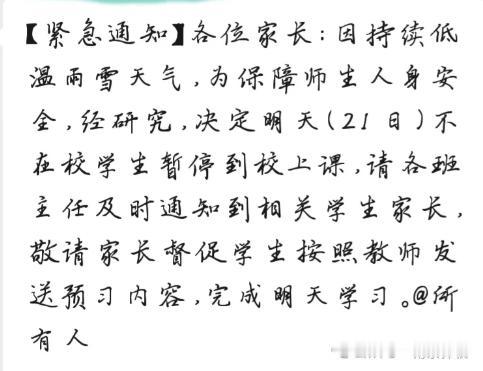 【紧急通知】各位家长:因持续低
温雨雪天气,为保障师生人身安
全,经研究,决定明天(21日)不
在校学生暂停到校上课,请各班
主任及时通知到相关学生家长,
敬请家长督促学生按照教师发
送预习内容,完成明天学习。@所
有人